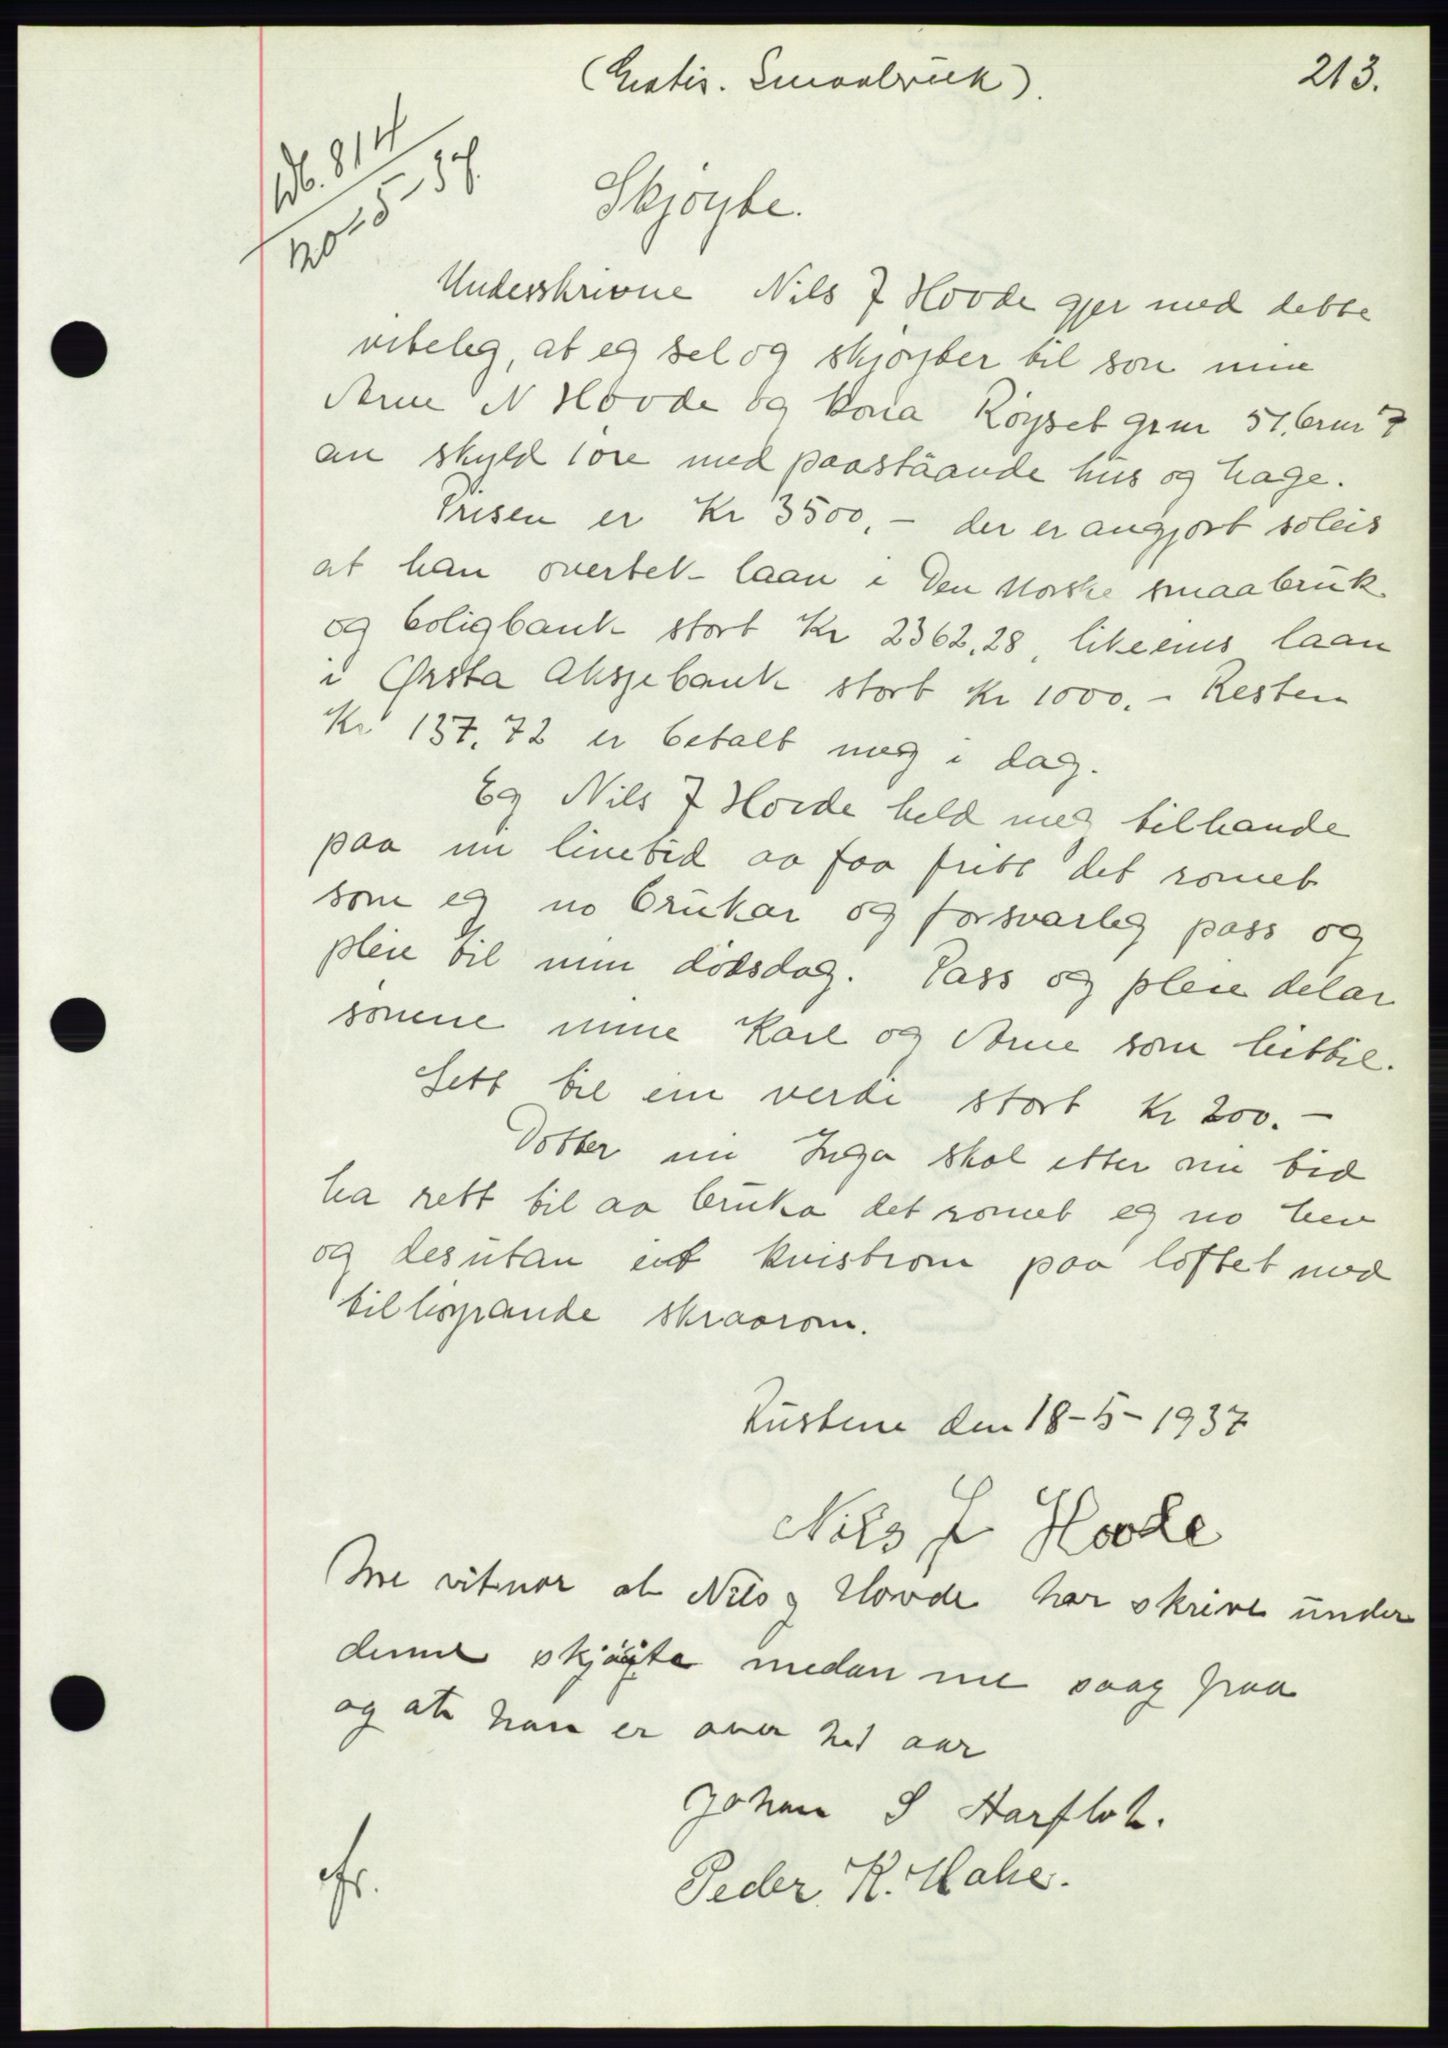 (Gratis. Smaabruk).
213.
Db. 814
20-5-37.
Skjøyte.
Underskrivne Nils J Hovde gjer med dette
viteleg, at eg sel og skjøyter til son min
Arne N Hovde og kona Røyset grnr 51, brnr 7
av skyld 1 øre med paastaande hus og hage.
Prisen er Kr 3500,- der er avgjort soleis
at han overtek laan i Den Norske smaabruk
og boligbank stort Kr 2362,28, likeeins laan
i Ørsta Aksjebank stort Kr 1000.- Resten
Kr 137.72 er betalt meg i dag.
Eg Nils J Hovde held meg tilhande
paa mi livetid aa faa fritt det romet
som eg no brukar og forsvarleg pass og
pleie til min dødsdag. Pass og pleie delar
sønene mine Karl og Arne som hittil.
Sett til ein verdi stort Kr 200.-
Dotter mi Inga skal etter mi tid
ha rett til aa bruka det romet eg no hev
og desutan eit kvistrom paa loftet med
tilhøyrande skraarom.
Rustene den 18-5-1937
Nils J Hovde
Me vitnar at Nils J Hovde har skrive under
denne skjøyte medan me saag paa
og at han er over 21 aar
Johan S Harflot.
Peder K. Hake.